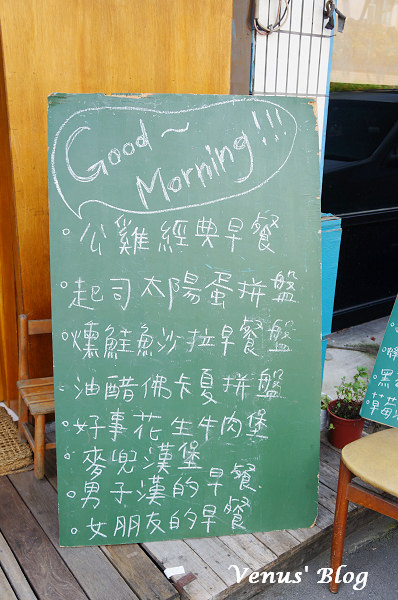 Good~
Morning!!!
。公雞經典早餐
。起司太陽蛋拼盤
。燻鮭魚沙拉早餐盤
。油醋佛卡夏拼盤
。好事花生牛肉堡
。麥兜漢堡
。男子漢的早餐
。女朋友的早餐
草莓
Venus' Blog